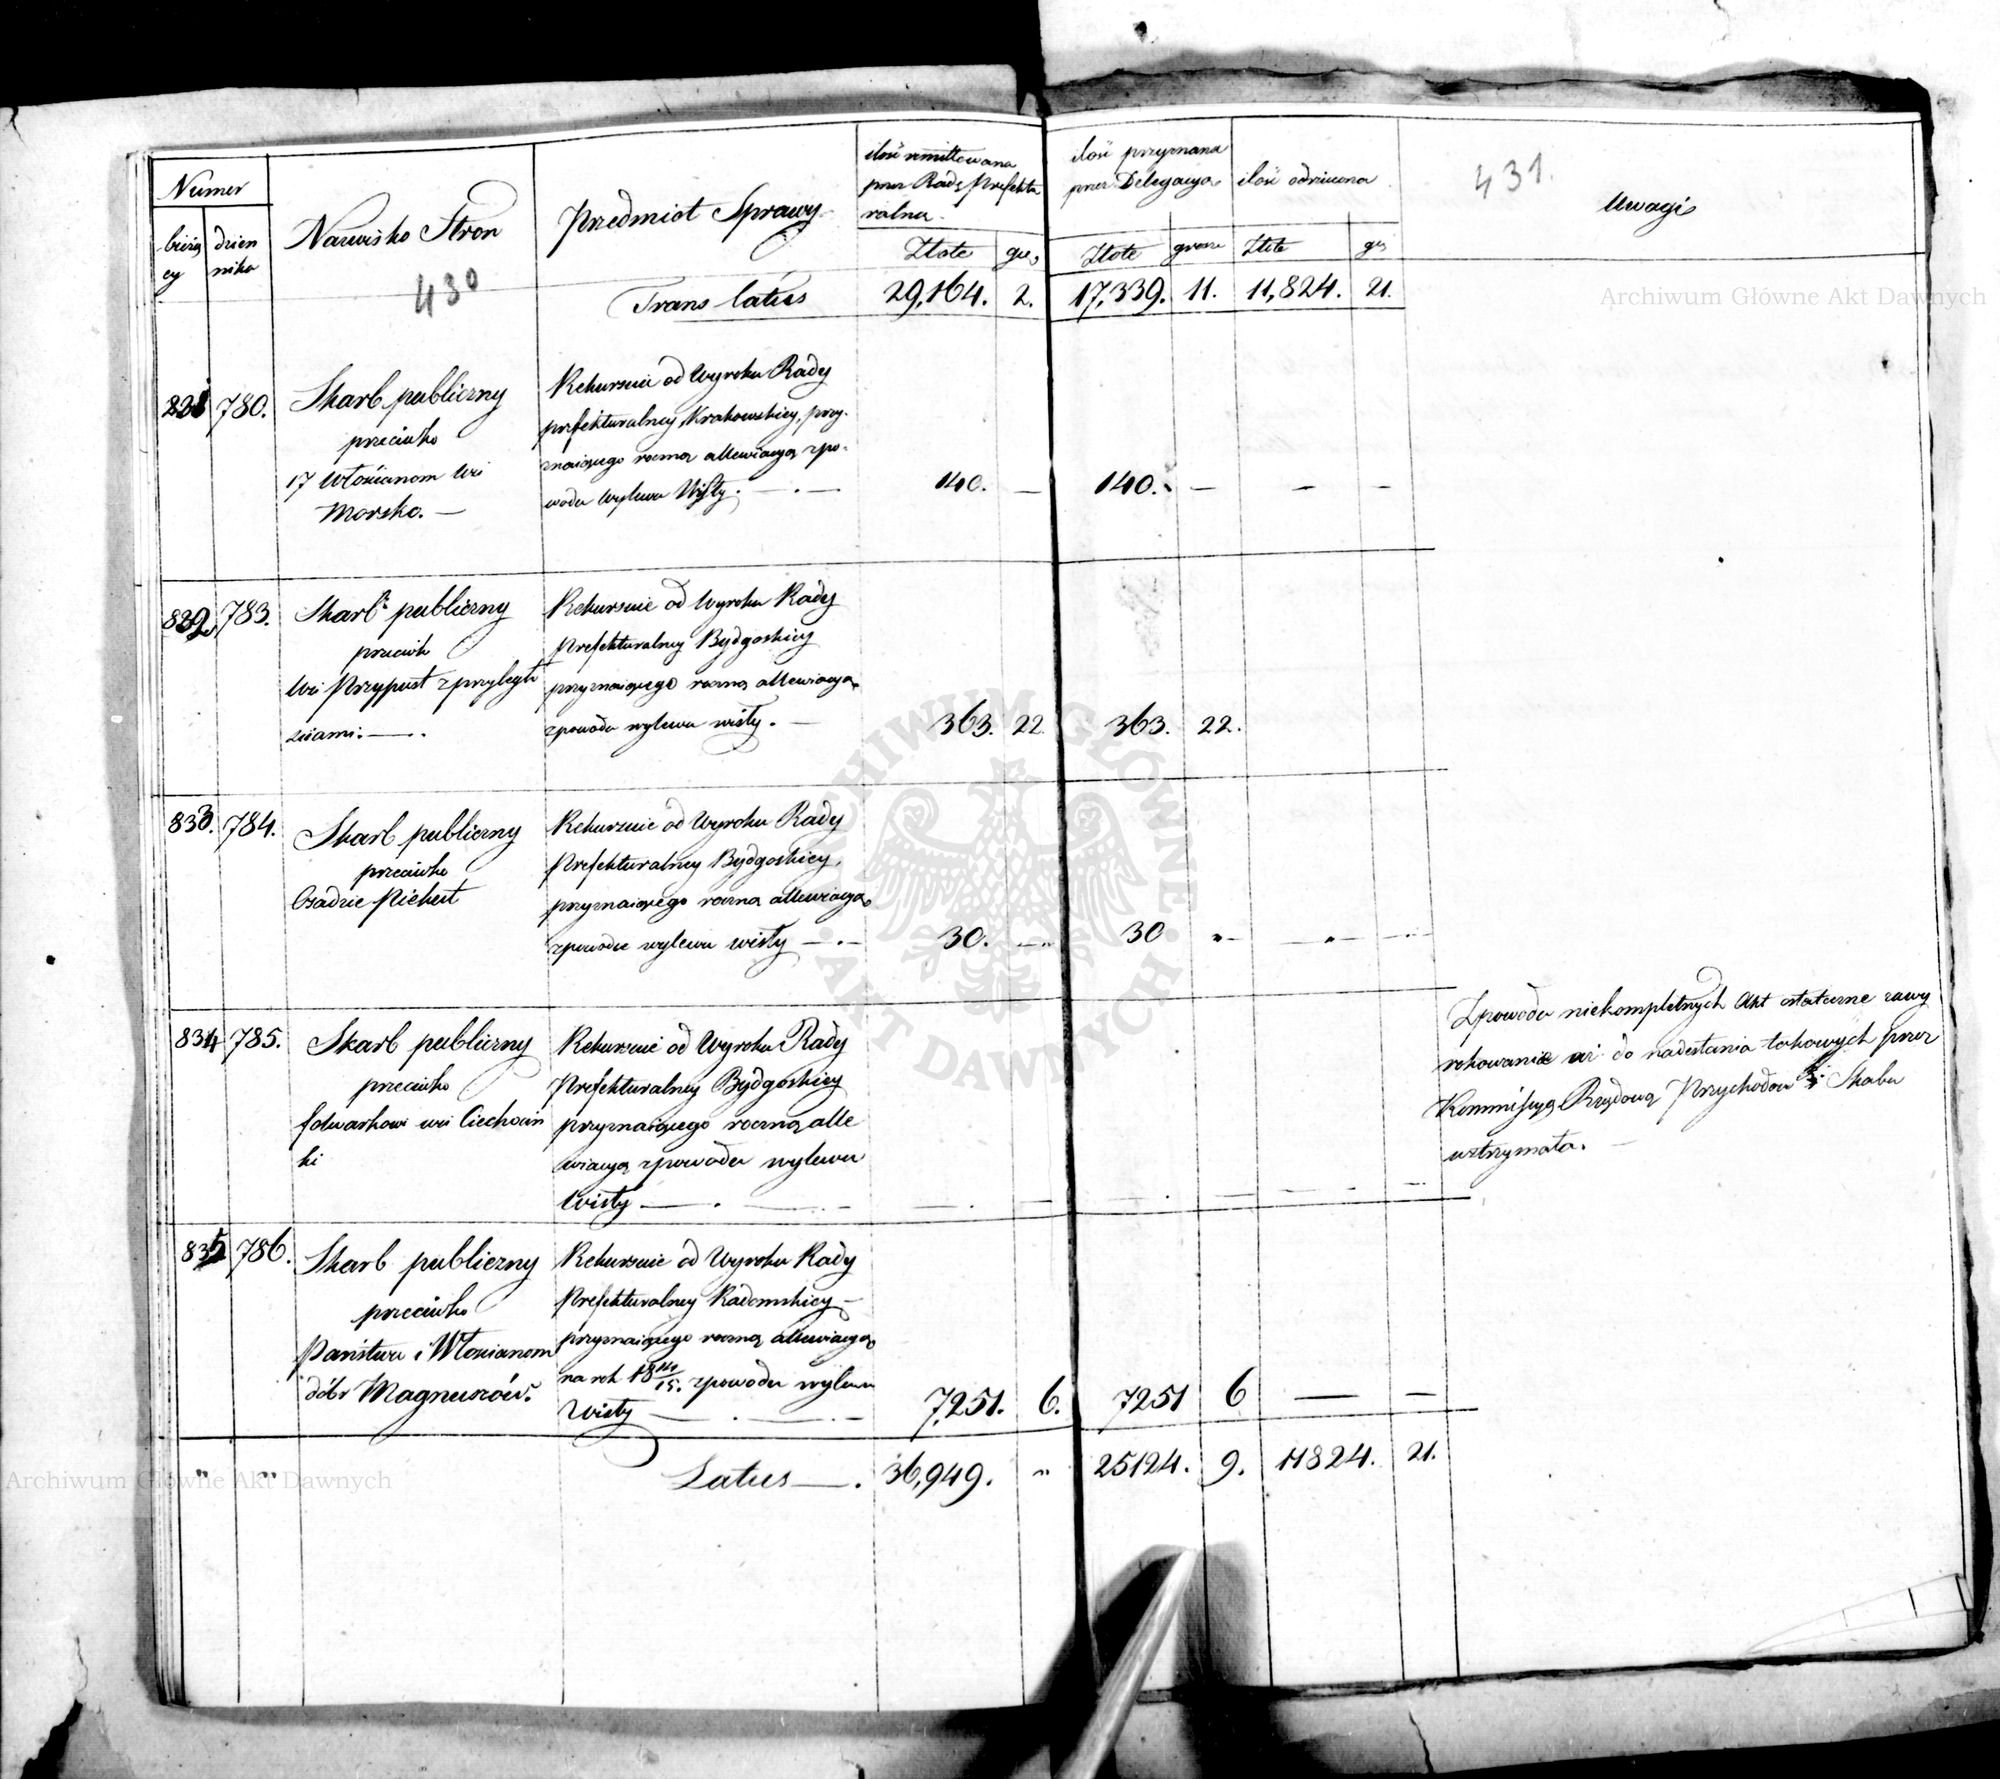 Numer
bieżą
cy
dzien
nika
Nazwisko Stron
430
Przedmiot Sprawy
ilość remittowana
przez Radę Prefektu
ralną
Złote
gr.
ilość przyznana
przez Delegacyą
Złote
grosze
ilość odrzucona
Złote
gr.
431.
Uwagi
Trans latus
29,164. 2. 17,339. 11. 11,824. 21.
831 780. Skarb publiczny
przeciwko
17 Włościanom Wsi
Morsko. —
Rekursuie od Wyroku Rady
prefekturalney Krakowskiey, przy-
znaiącego roczną allewiacyą zpo-
wodu wylewu Wisły. — . —
140. — 140. — — —
832 783. Skarb publiczny
przeciwk
Wsi Przypust zprzyległo
sciami. — .
Rekursuie od Wyroku Rady
Prefekturalney Bydgoskiey
przyznaiącego roczną allewiacyą
zpowodu wylewu wisły. —
363. 22 363. 22.
833. 784. Skarb publiczny
przeciwko
Osadzie Piekert
Rekursuie od Wyroku Rady
Prefekturalney Bydgoskiey,
przyznaiącego roczną allewiacyą
zpowodu wylewu wisły — . —
30. — 30
834 785. Skarb publiczny
przeciwko
folwarkowi wsi Ciechocin
ki
Rekursuie od Wyroku Rady
Prefekturalney Bydgoskiey
przyznaiącego roczną alle
wiacyą zpowodu wylewu
Wisły — .
Zpowodu niekompletnych Akt ostateczne zawy
rokowanie aż do nadesłania takowych przez
Kommissyą Rządową Przychodów i Skarbu
wstrzymała. —
835 786. Skarb publiczny
przeciwko
Państwu i Włościanom
dóbr Magnuszów.
Rekursuie od Wyroku Rady
Prefekturalney Radomskiey —
przyznaiącego roczną allewiacyą
na rok 18 14/15. zpowodu wylewu
Wisły — . — . —
7,251. 6. 7251 6 — —
" " Latus — . 36,949. " 25124. 9. 11824. 21.
Archiwum Główne Akt Dawnych
Archiwum Główne Akt Dawnych
ARCHIWUM GŁÓWNE · AKT DAWNYCH ·